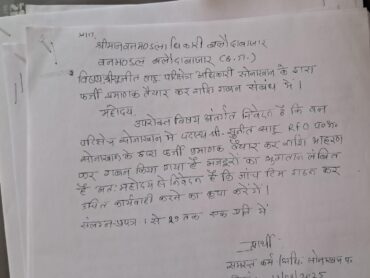 प्रति,
श्रीमान वनमण्डलाधिकारी बलौदाबाजार
वनमण्डल बलौदाबाजार (छ.ग.)
विषय:- श्री सुनीत साहू परिक्षेत्र अधिकारी सोनाखान के द्वारा
फर्जी प्रमाणक तैयार कर राशि गबन संबंध में।
महोदय,
उपरोक्त विषय अंतर्गत निवेदन है कि वन
परिक्षेत्र सोनाखान में पदस्थ श्री सुनीत साहू RFO
सोनाखान के द्वारा फर्जी प्रमाणक तैयार कर राशि आहरण
कर गबन किया गया है मजदूरों का भुगतान लंबित
है अतः महोदय से निवेदन है कि जांच टिम गठित कर
उचित कार्यवाही करने का कृपा करेंगे।
संलग्न प्रपत्र 1 से 29 तक
प्रार्थी
समस्त कर्म सोनाखान
2025